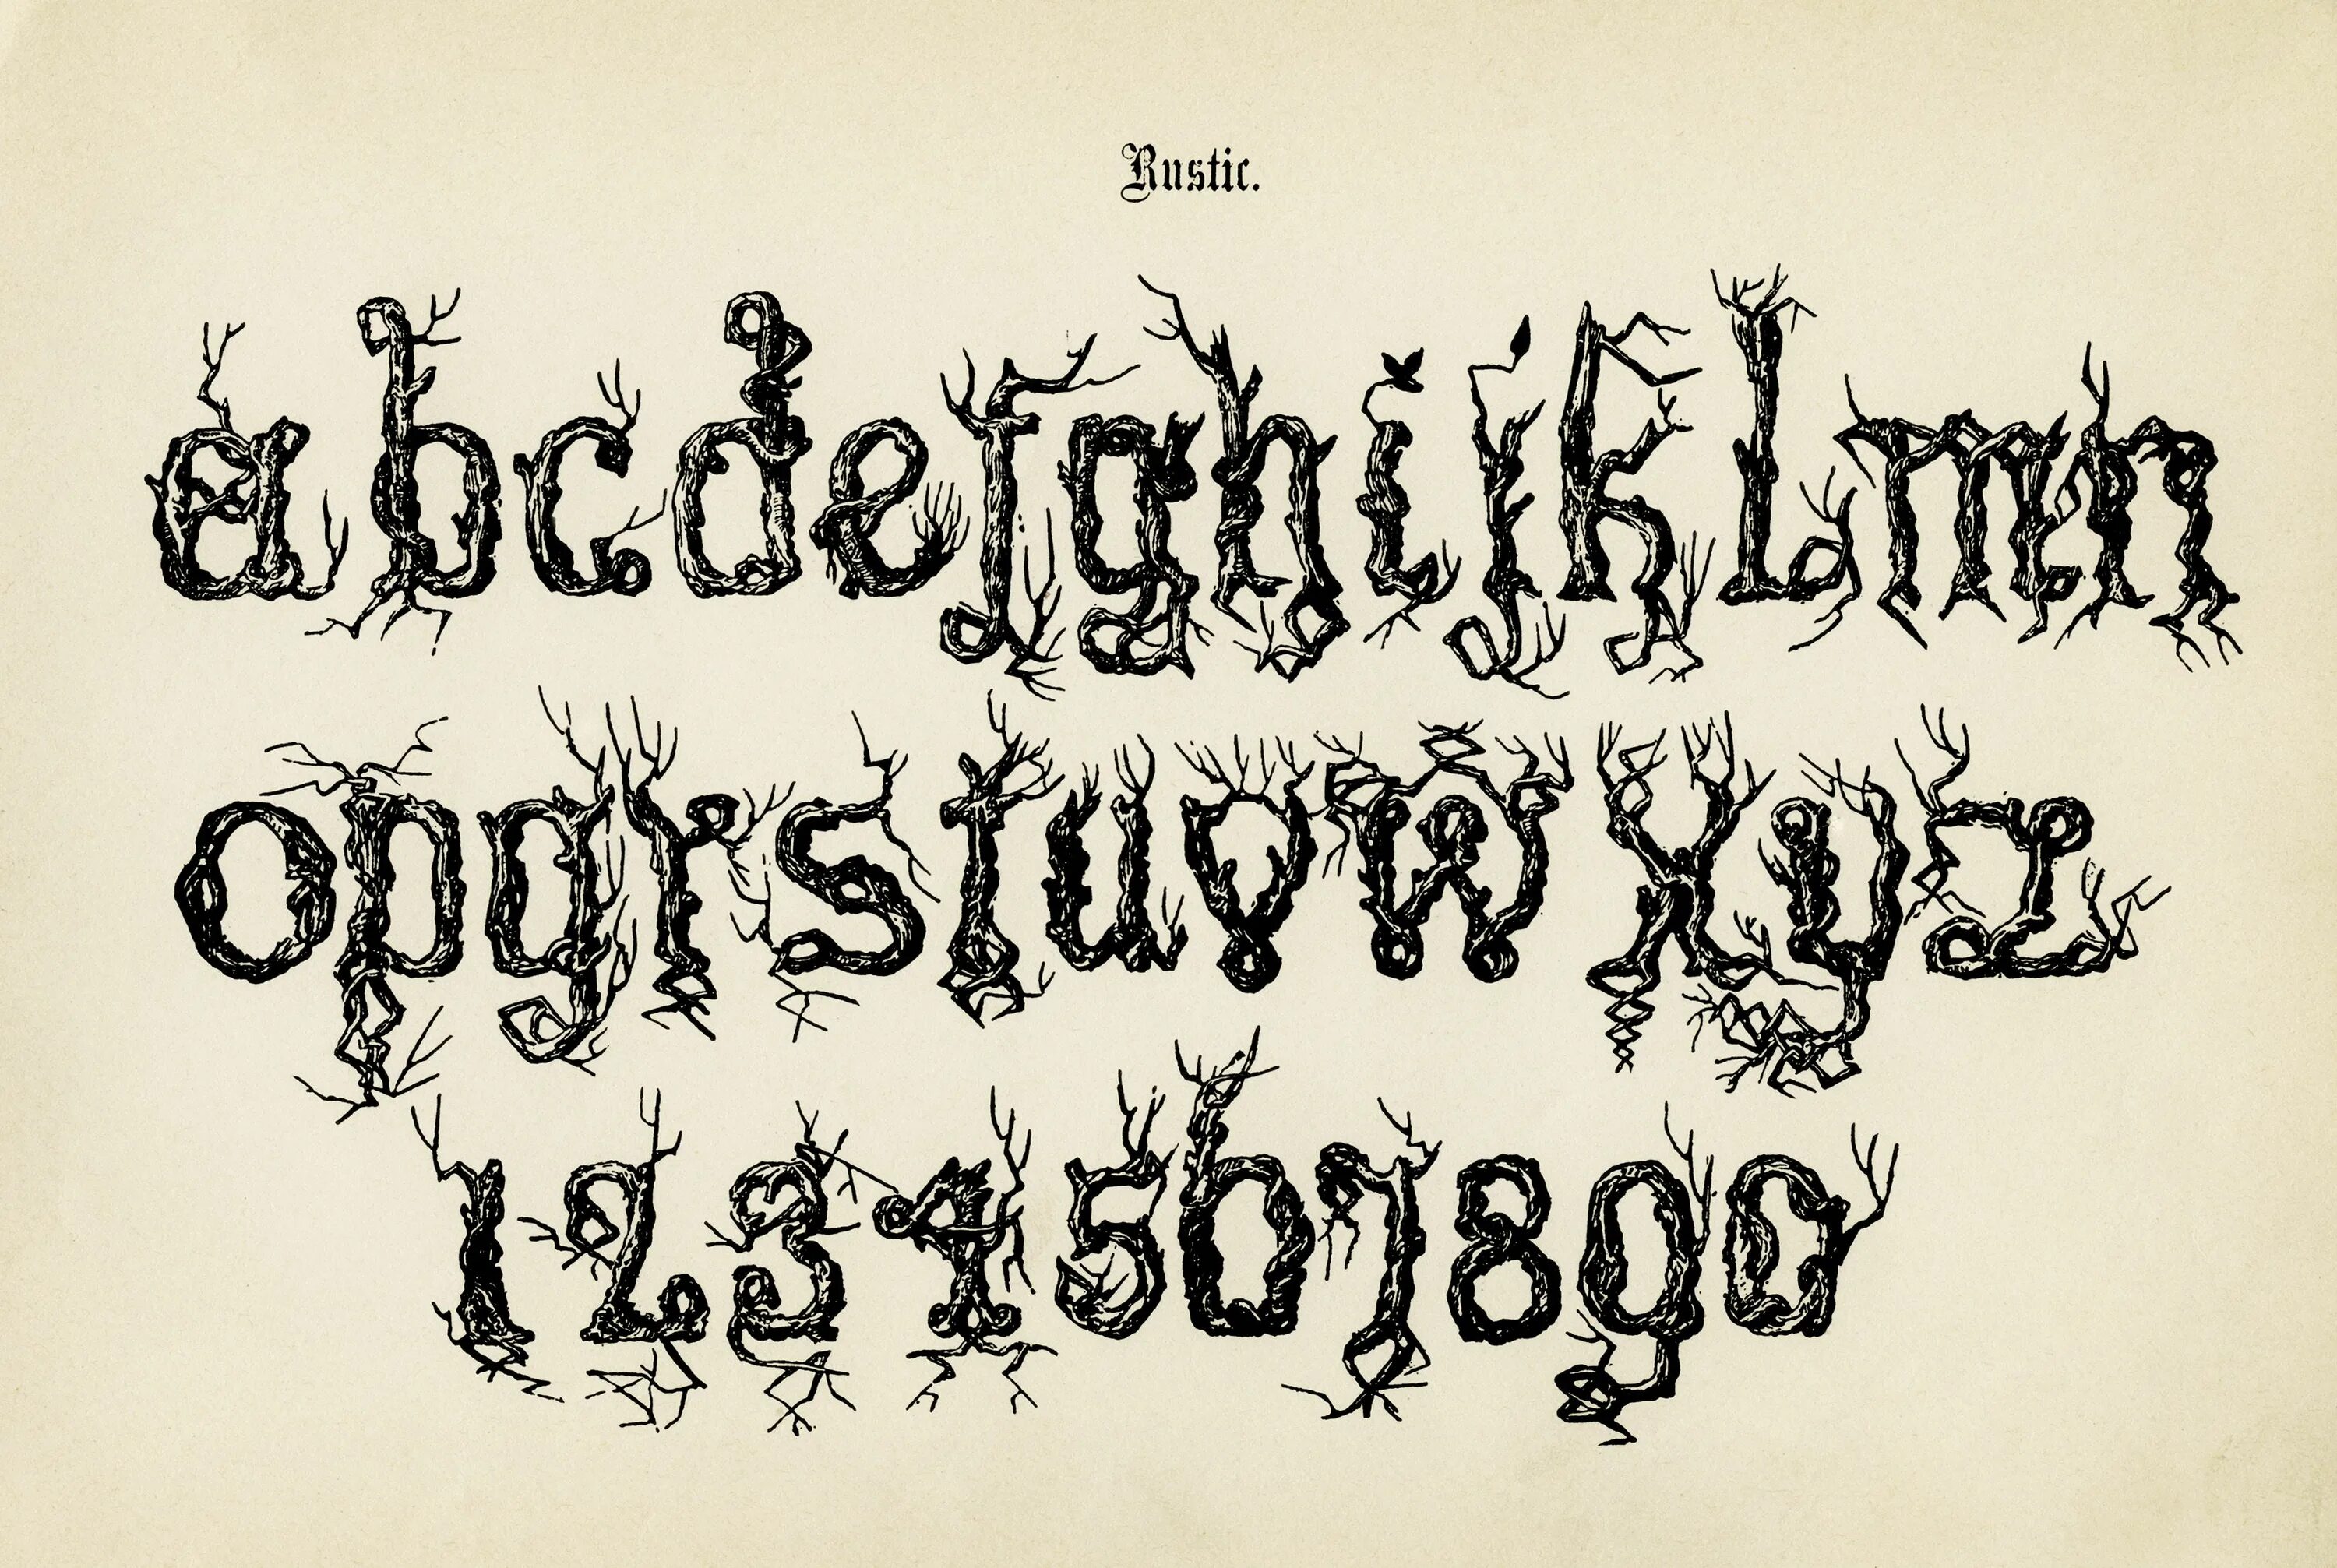 Rustic.
abcdefghijklmn
opqrstuvwxyz
1234567890